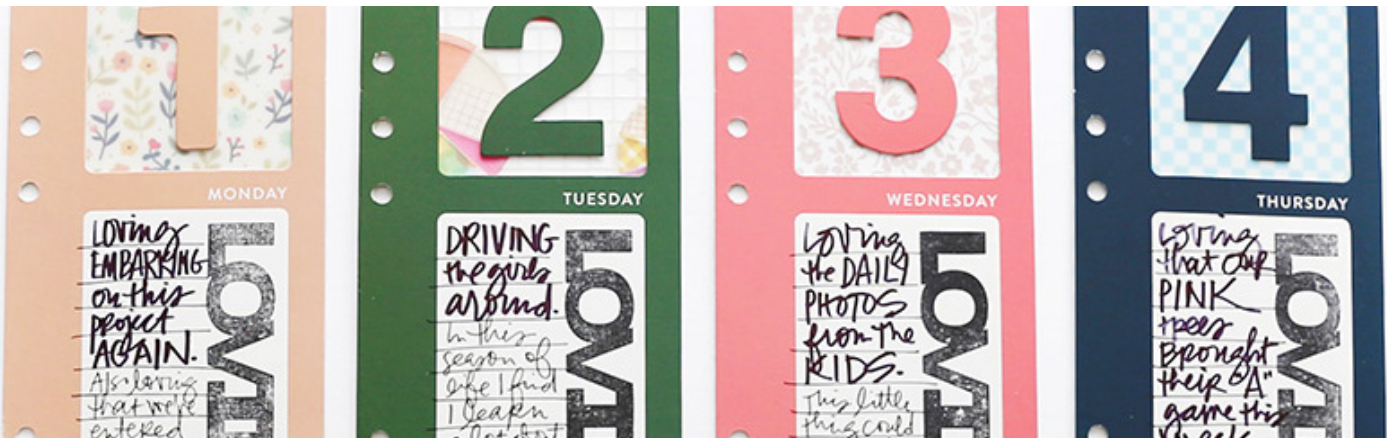 1
MONDAY
Loving
EMBARKING
on this
project
AGAIN.
Also loving
that we're
entered
LOVE
2
TUESDAY
DRIVING
the girls
around.
In this
season of
life I find
I learn
a lot about
LOVE
3
WEDNESDAY
Loving
the DAILY
PHOTOS
from the
KIDS.
This little
thing could
LOVE
4
THURSDAY
Loving
that our
PINK
trees
Brought
their "A"
game this
week
LOVE